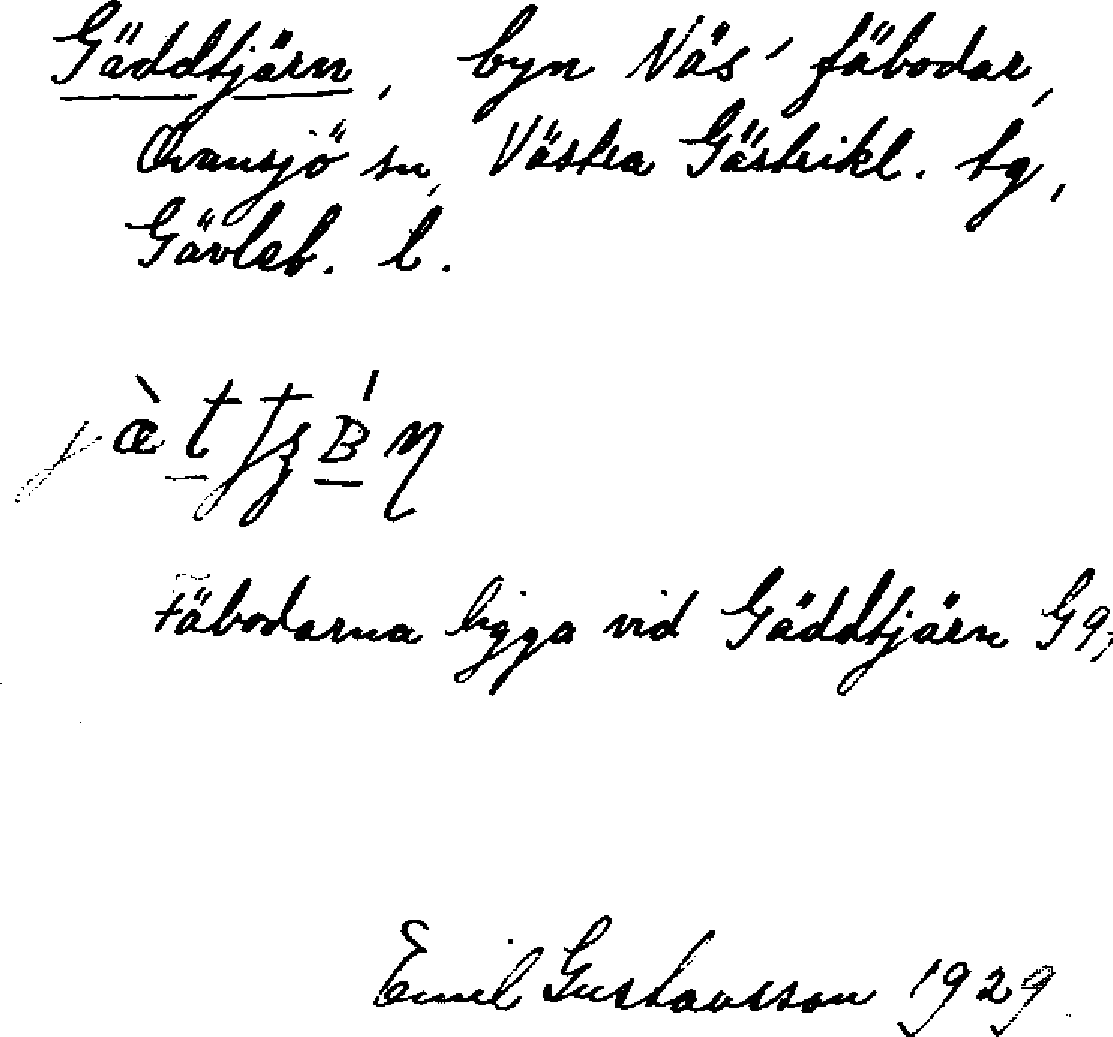 Gäddtjärn, byn Näs' fäbodar,
Ovansjö sn, Västra Gästrikl. tg,
Gävleb. l.
Fäbodarna ligga vid Gäddtjärn Gq;
Emil Gustavsson 1929.